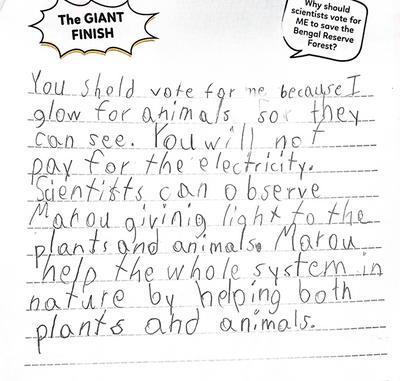 The GIANT
FINISH
Why should
scientists vote for
ME to save the
Bengal Reserve
Forest?
You shold vote for me because I
glow for animals so they
can see. You will not
pay for the electricity.
Scientists can observe
Marou givinig light to the
plants and animals. Marou
help the whole system in
nature by helping both
plants and animals.